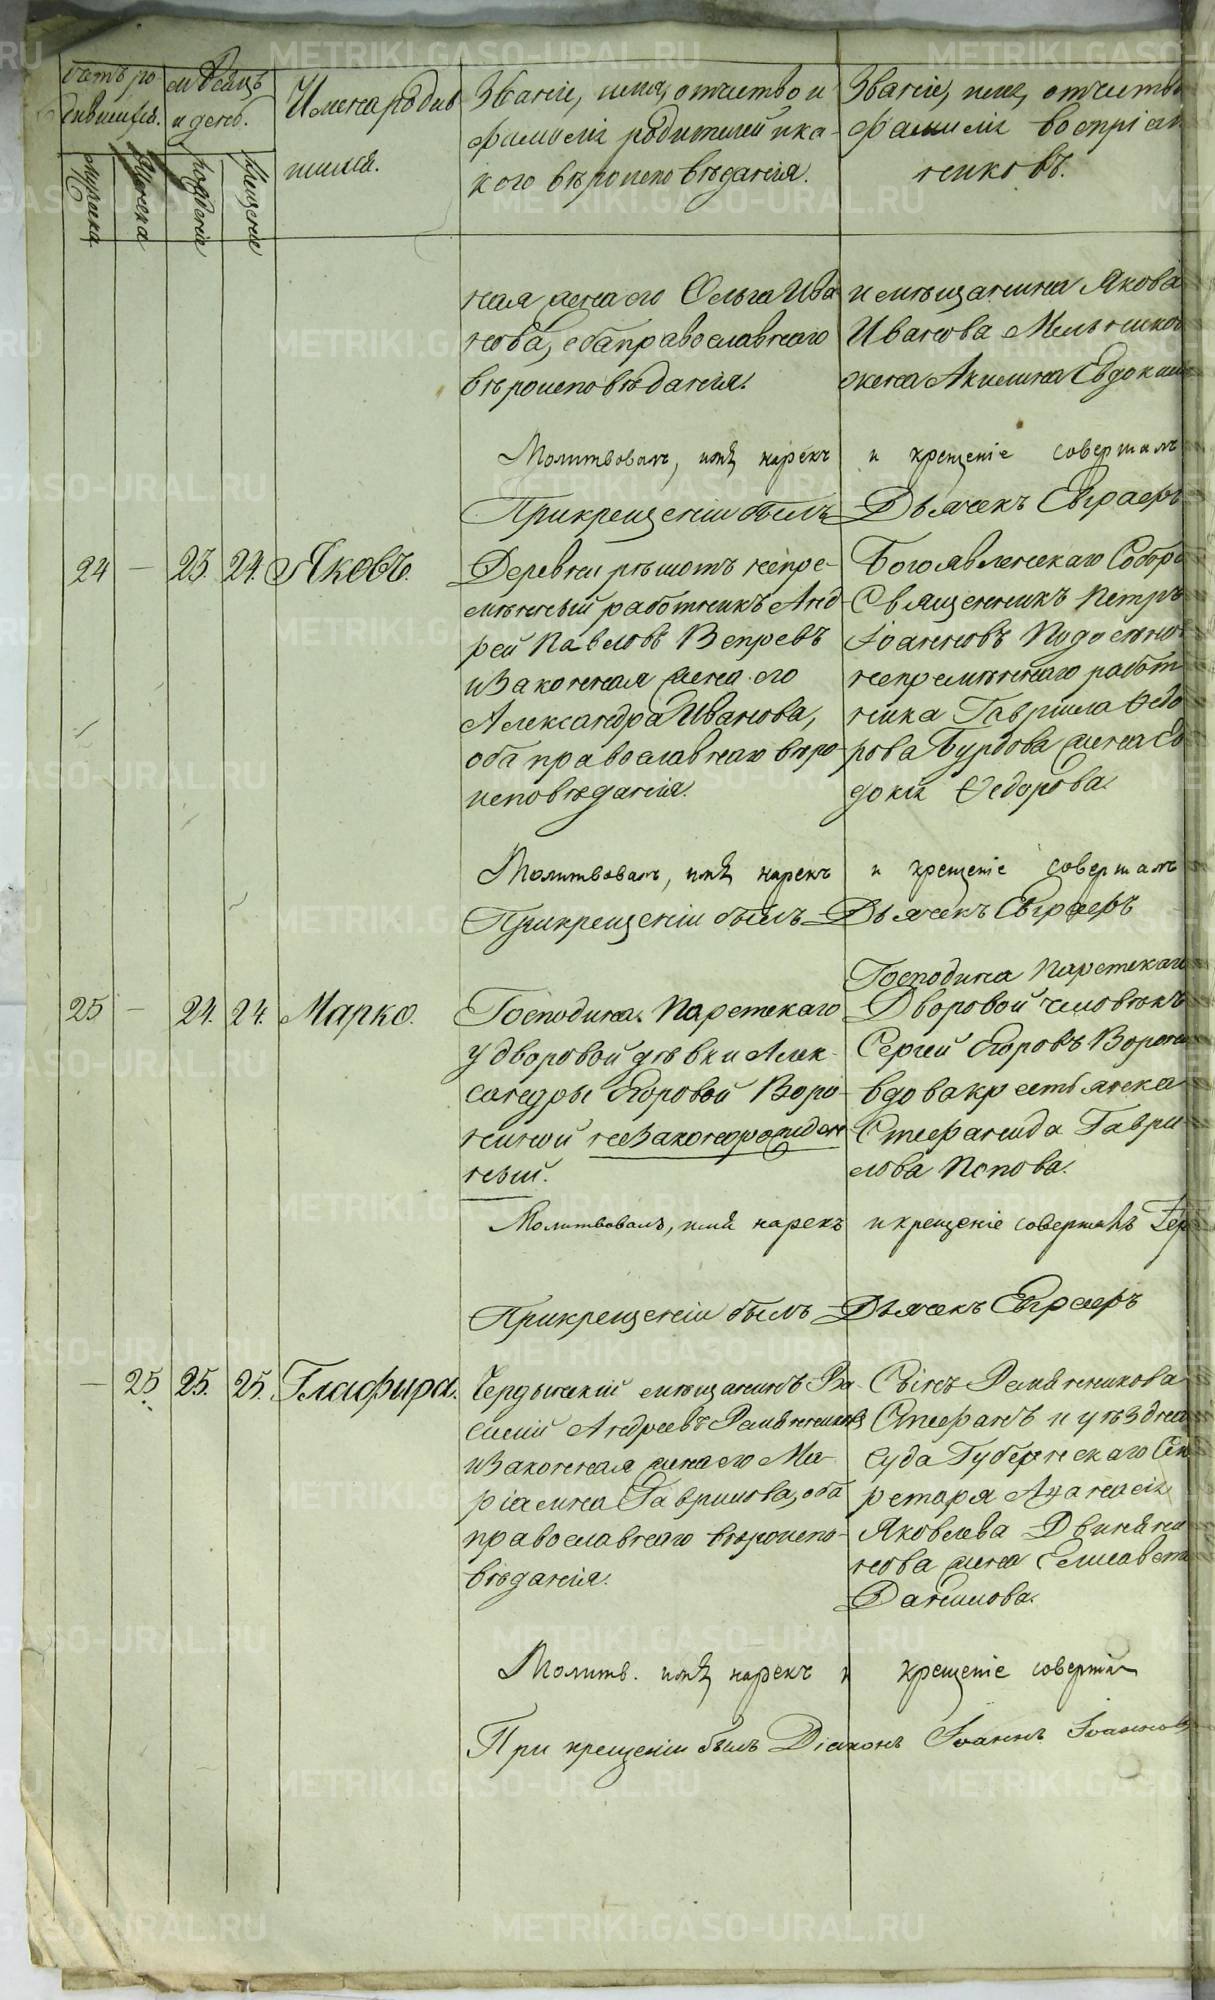 Счетъ ро
дившихся.
Мѣсяцъ
и день.
мужеска
женска
рожденія
крещенія
Имена родив
шихся.
Званіе, имя, отчество и
фамилія родителей и ка-
кого вѣроисповѣданія.
Званіе, имя, отчество
фамилія воспріем
никовъ.
ная жена его Ольга Ива
нова, оба православнаго
вѣроисповѣданія.
и мѣщанина Якова
Иванова Мельников
жена Акилина Евдоким
Молитвовалъ, имя нарекъ и крещеніе совершалъ
При крещеніи былъ Дьячекъ Евграфъ
24 — 23. 24. Яковъ.
Деревни Рѣшотъ непре-
мѣнный работникъ Анд-
рей Павловъ Вепревъ
и законная жена его
Александра Иванова,
оба православнаго вѣро-
исповѣданія.
Богоявленскаго Собора
Священникъ Петръ
Іоанновъ
непремѣннаго работ
ника Гаврила Ѳедо
рова Бурдова жена Ев
докія Ѳедорова.
Молитвовалъ, имя нарекъ и крещеніе совершалъ
При крещеніи былъ Дьячекъ Евграфъ
25 — 24. 24. Марко.
Господина
у дворовой дѣвки Алек-
сандры Егоровой Воро-
ниной незаконорожден
ный.
Господина
Дворовой человѣкъ
Сергей Егоровъ Ворони
вдова крестьянска
Стефанида Гаври
лова Попова.
Молитвовалъ, имя нарекъ и крещеніе совершалъ
При крещеніи былъ Дьячекъ Евграфъ
— 25 25. 25. Глафира.
Чердынскій мѣщанинъ Ва-
силій Андреевъ
и законная жена его Ма-
ріамна Гаврилова, оба
православнаго вѣроиспо-
вѣданія.
Сынъ
Стефанъ и уѣзднаго
суда Губернскаго Сек
ретаря Аѳанасія
Яковлева
нова жена Елисавета
Данилова.
Молитв. имя нарекъ и крещеніе соверши
При крещеніи былъ Діаконъ Іоаннъ Іоанновъ
METRIKI.GASO-URAL.RU